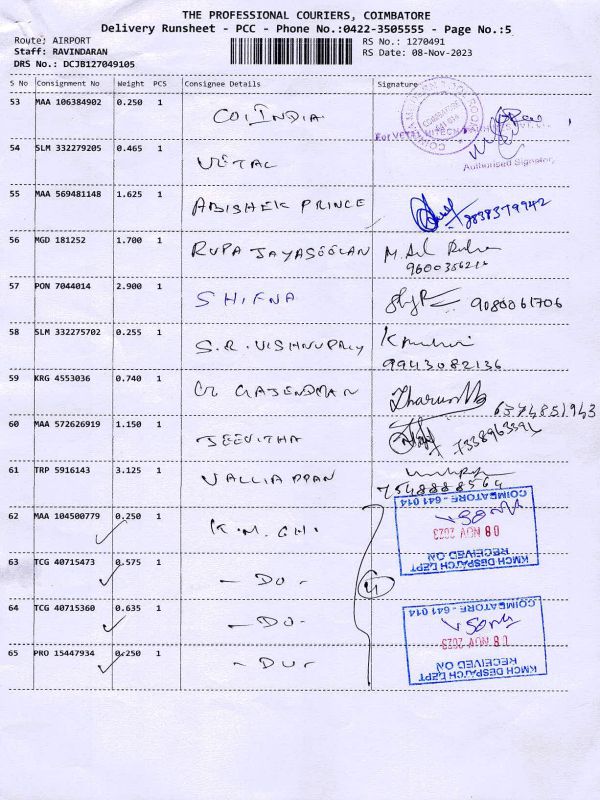 THE PROFESSIONAL COURIERS, COIMBATORE
Delivery Runsheet - PCC - Phone No.:0422-3505555 - Page No.:5
Route: AIRPORT
Staff: RAVINDARAN
DRS No.: DCJB127049105
RS No.: 1270491
RS Date: 08-Nov-2023
S No Consignment No Weight PCS Consignee Details Signature
53 MAA 106384902 0.250 1 COLINDIA
For VETAL HITECH
Authorised Signatory
54 SLM 332279205 0.465 1 VETAL
55 MAA 569481148 1.625 1 ABISHEK PRINCE 8838379942
56 MGD 181252 1.700 1 RUPA JAYASOOLAN
57 PON 7044014 2.900 1 SHIFNA 9080061706
58 SLM 332275702 0.255 1 S.R. VISHNUPRIY
9943082136
59 KRG 4553036 0.740 1 GAJENDMAN 6374851943
60 MAA 572626919 1.150 1 JEEVITHA
61 TRP 5916143 3.125 1 VALLIAPPAN
7548888564
62 MAA 104500779 0.250 1 K.M.CH.
KMCH DESPATCH DEPT
RECEIVED ON
08 NOV 2023
COIMBATORE - 641 014
63 TCG 40715473 0.575 1 - DO - 4
64 TCG 40715360 0.635 1 - DO -
KMCH DESPATCH DEPT
RECEIVED ON
08 NOV 2023
COIMBATORE - 641 014
65 PRO 15447934 0.250 1 - DO -